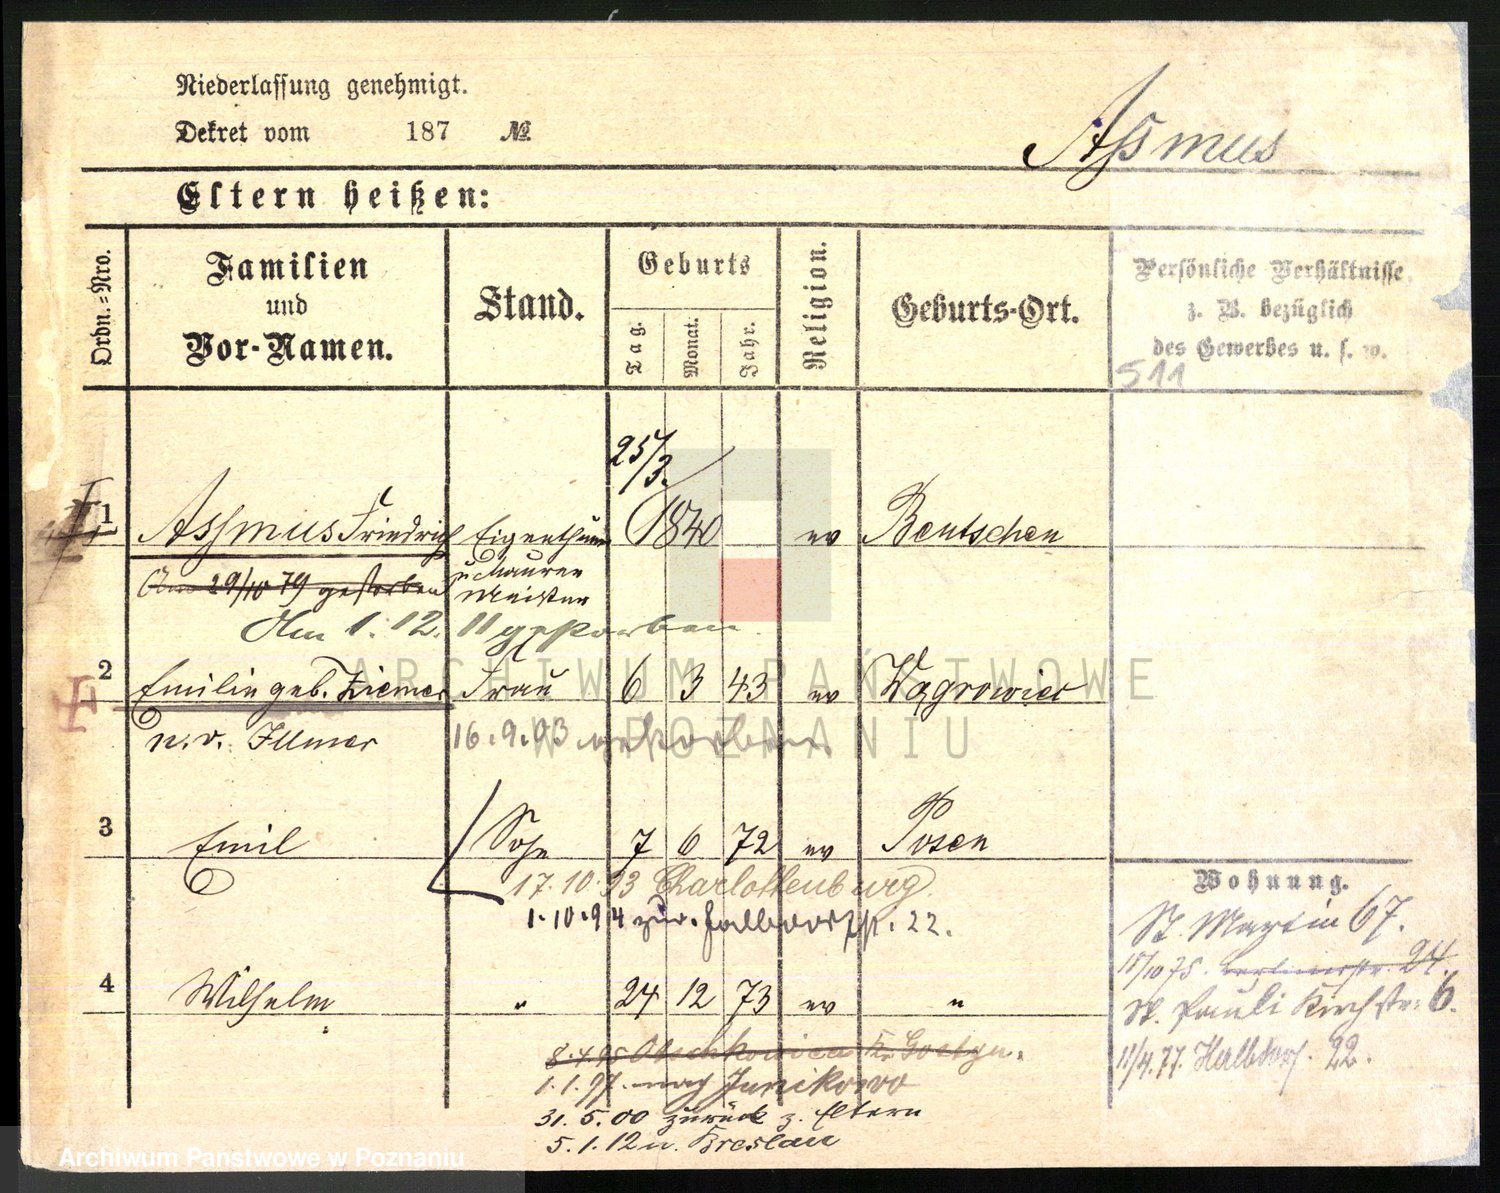 Niederlassung genehmigt.
Dekret vom 187 №
Aßmus
Eltern heißen:
Ordn.-Nro.
Familien
und
Vor-Namen.
Stand.
Geburts
Tag.
Monat.
Jahr.
Religion.
Geburts-Ort.
Persönliche Verhältnisse
z. B. bezüglich
des Gewerbes u. s. w.
511
25/3.
1 Assmus Friedrich Eigenthümer 1840 ev Bentschen
Am 29/10 79 gestorben
Maurer
Meister
Am 1. 12. 11 gestorben.
2 Emilie geb. Ziemer Frau 6 3 43 ev Wągrowiec
n. v. Illmer 16.9.03 gestorben
3 Emil Sohn 7 6 72 ev Posen
17.10.93 Charlottenburg
1.10.94 zur. Halbdorfstr. 22.
4 Wilhelm " 24 12 73 ev "
8.4.95 Kr. Gostyn.
1.1.97. nach Junikowo
31.5.00 zurück z. Eltern
5.1.12 n. Breslau
Wohnung.
St. Martin 67.
18/10 75. Berlinerstr. 24.
St. Pauli Kirchstr. 6.
11/4.77. Halbdorf. 22.
ARCHIWUM PAŃSTWOWE
W POZNANIU
Archiwum Państwowe w Poznaniu